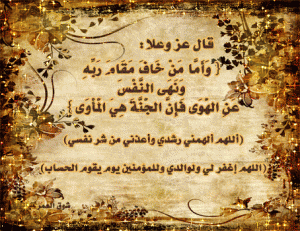 قال عز وعلا:
{ وَأَمَّا مَنْ خَافَ مَقَامَ رَبِّهِ
وَنَهَى النَّفْسَ
عَنِ الْهَوَى فَإِنَّ الْجَنَّةَ هِيَ الْمَأْوَى }
(اللهم ألهمني رشدي وأعذني من شر نفسي)
(اللهم إغفر لي ولوالدي وللمؤمنين يوم يقوم الحساب)
شوق